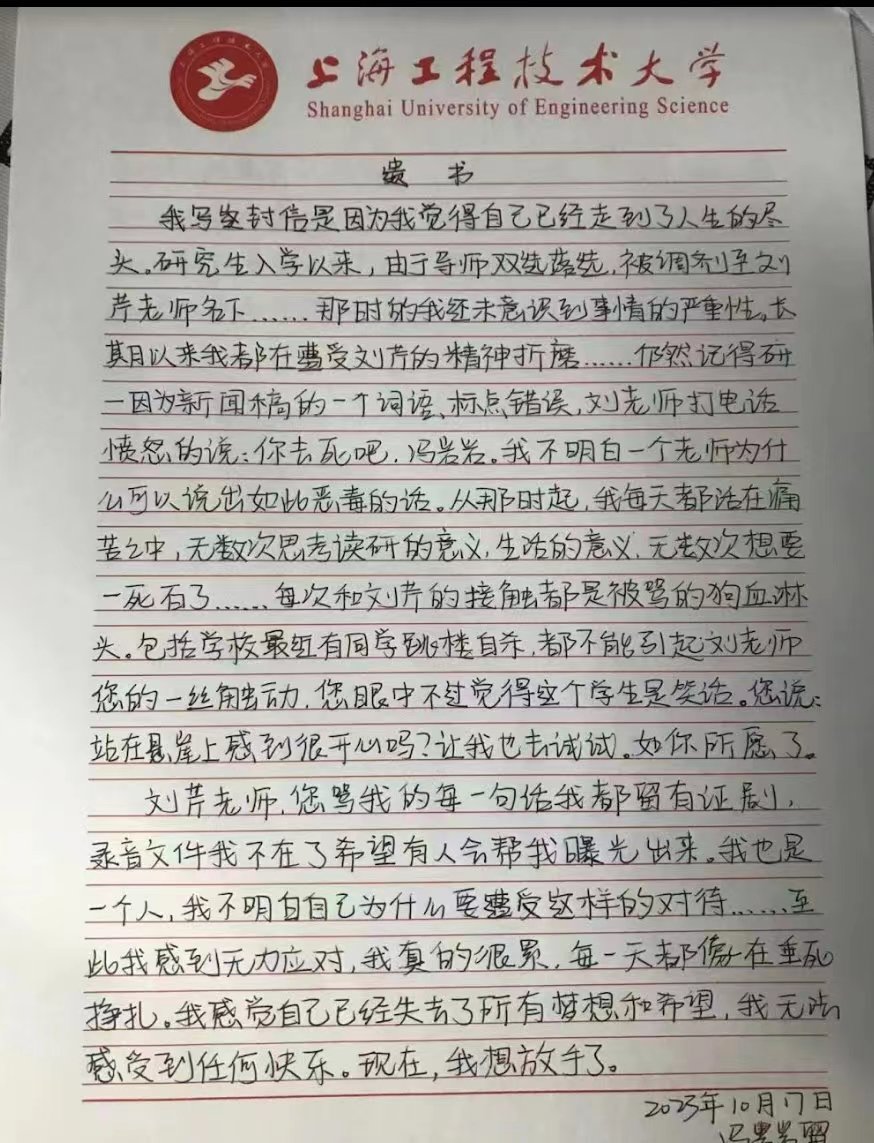 上海工程技术大学
Shanghai University of Engineering Science
遗书
我写这封信是因为我觉得自己已经走到了人生的尽
头。研究生入学以来，由于导师双选落选，被调剂至刘
芹老师名下……那时的我还未意识到事情的严重性，长
期以来我都在遭受刘芹的精神折磨……仍然记得研
一因为新闻稿的一个词语、标点错误，刘老师打电话
愤怒的说：你去死吧，冯岩岩。我不明白一个老师为什
么可以说出如此恶毒的话。从那时起，我每天都活在痛
苦之中，无数次思考读研的意义，生活的意义，无数次想要
一死百了……每次和刘芹的接触都是被骂的狗血淋
头。包括学校最近有同学跳楼自杀，都不能引起刘老师
您的一丝触动，您眼中不过觉得这个学生是笑话。您说：
站在悬崖上感到很开心吗？让我也去试试。如你所愿了。
刘芹老师，您骂我的每一句话我都留有证剧，
录音文件我不在了希望有人会帮我曝光出来。我也是
一个人，我不明白自己为什么要遭受这样的对待……至
此我感到无力应对，我真的很累，每一天都像在垂死
挣扎。我感觉自己已经失去了所有梦想和希望，我无法
感受到任何快乐。现在，我想放手了。
2023年10月17日